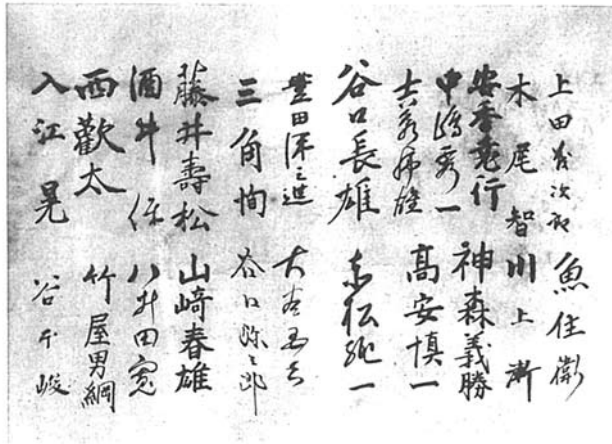 上田 次郎 魚住衛
木尾智 川上漸
安香堯行 神森義勝
中嶋秀一 高安慎一
谷口長雄 赤松純一
豊田 之進
三角恂 谷口弥三郎
藤井壽松 山﨑春雄
酒井保 八井田寛
西歡太 竹屋男綱
入江晃 谷 峻